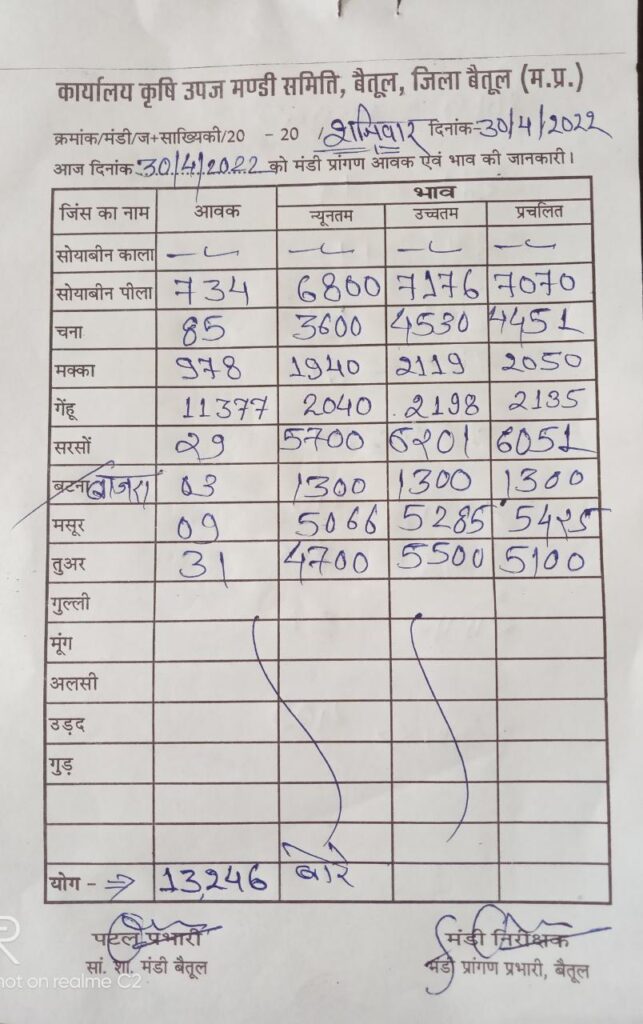 कार्यालय कृषि उपज मण्डी समिति, बैतूल, जिला बैतूल (म.प्र.)
क्रमांक/मंडी/ज+साख्यिकी/20 - 20 / शनिवार दिनांक-30/4/2022
आज दिनांक 30/4/2022 को मंडी प्रांगण आवक एवं भाव की जानकारी।
जिंस का नाम आवक भाव
न्यूनतम उच्चतम प्रचलित
सोयाबीन काला
सोयाबीन पीला 734 6800 7176 7070
चना 85 3600 4530 4451
मक्का 978 1940 2119 2050
गेंहू 11377 2040 2198 2135
सरसों 29 5700 6201 6051
बटना बाजरा 03 1300 1300 1300
मसूर 09 5066 5285 5425
तुअर 31 4700 5500 5100
गुल्ली
मूंग
अलसी
उड़द
गुड़
योग - ⇒ 13,246 बोरे
पटल प्रभारी मंडी निरीक्षक
सां. शा. मंडी बैतूल मंडी प्रांगण प्रभारी, बैतूल
R
hot on realme C2